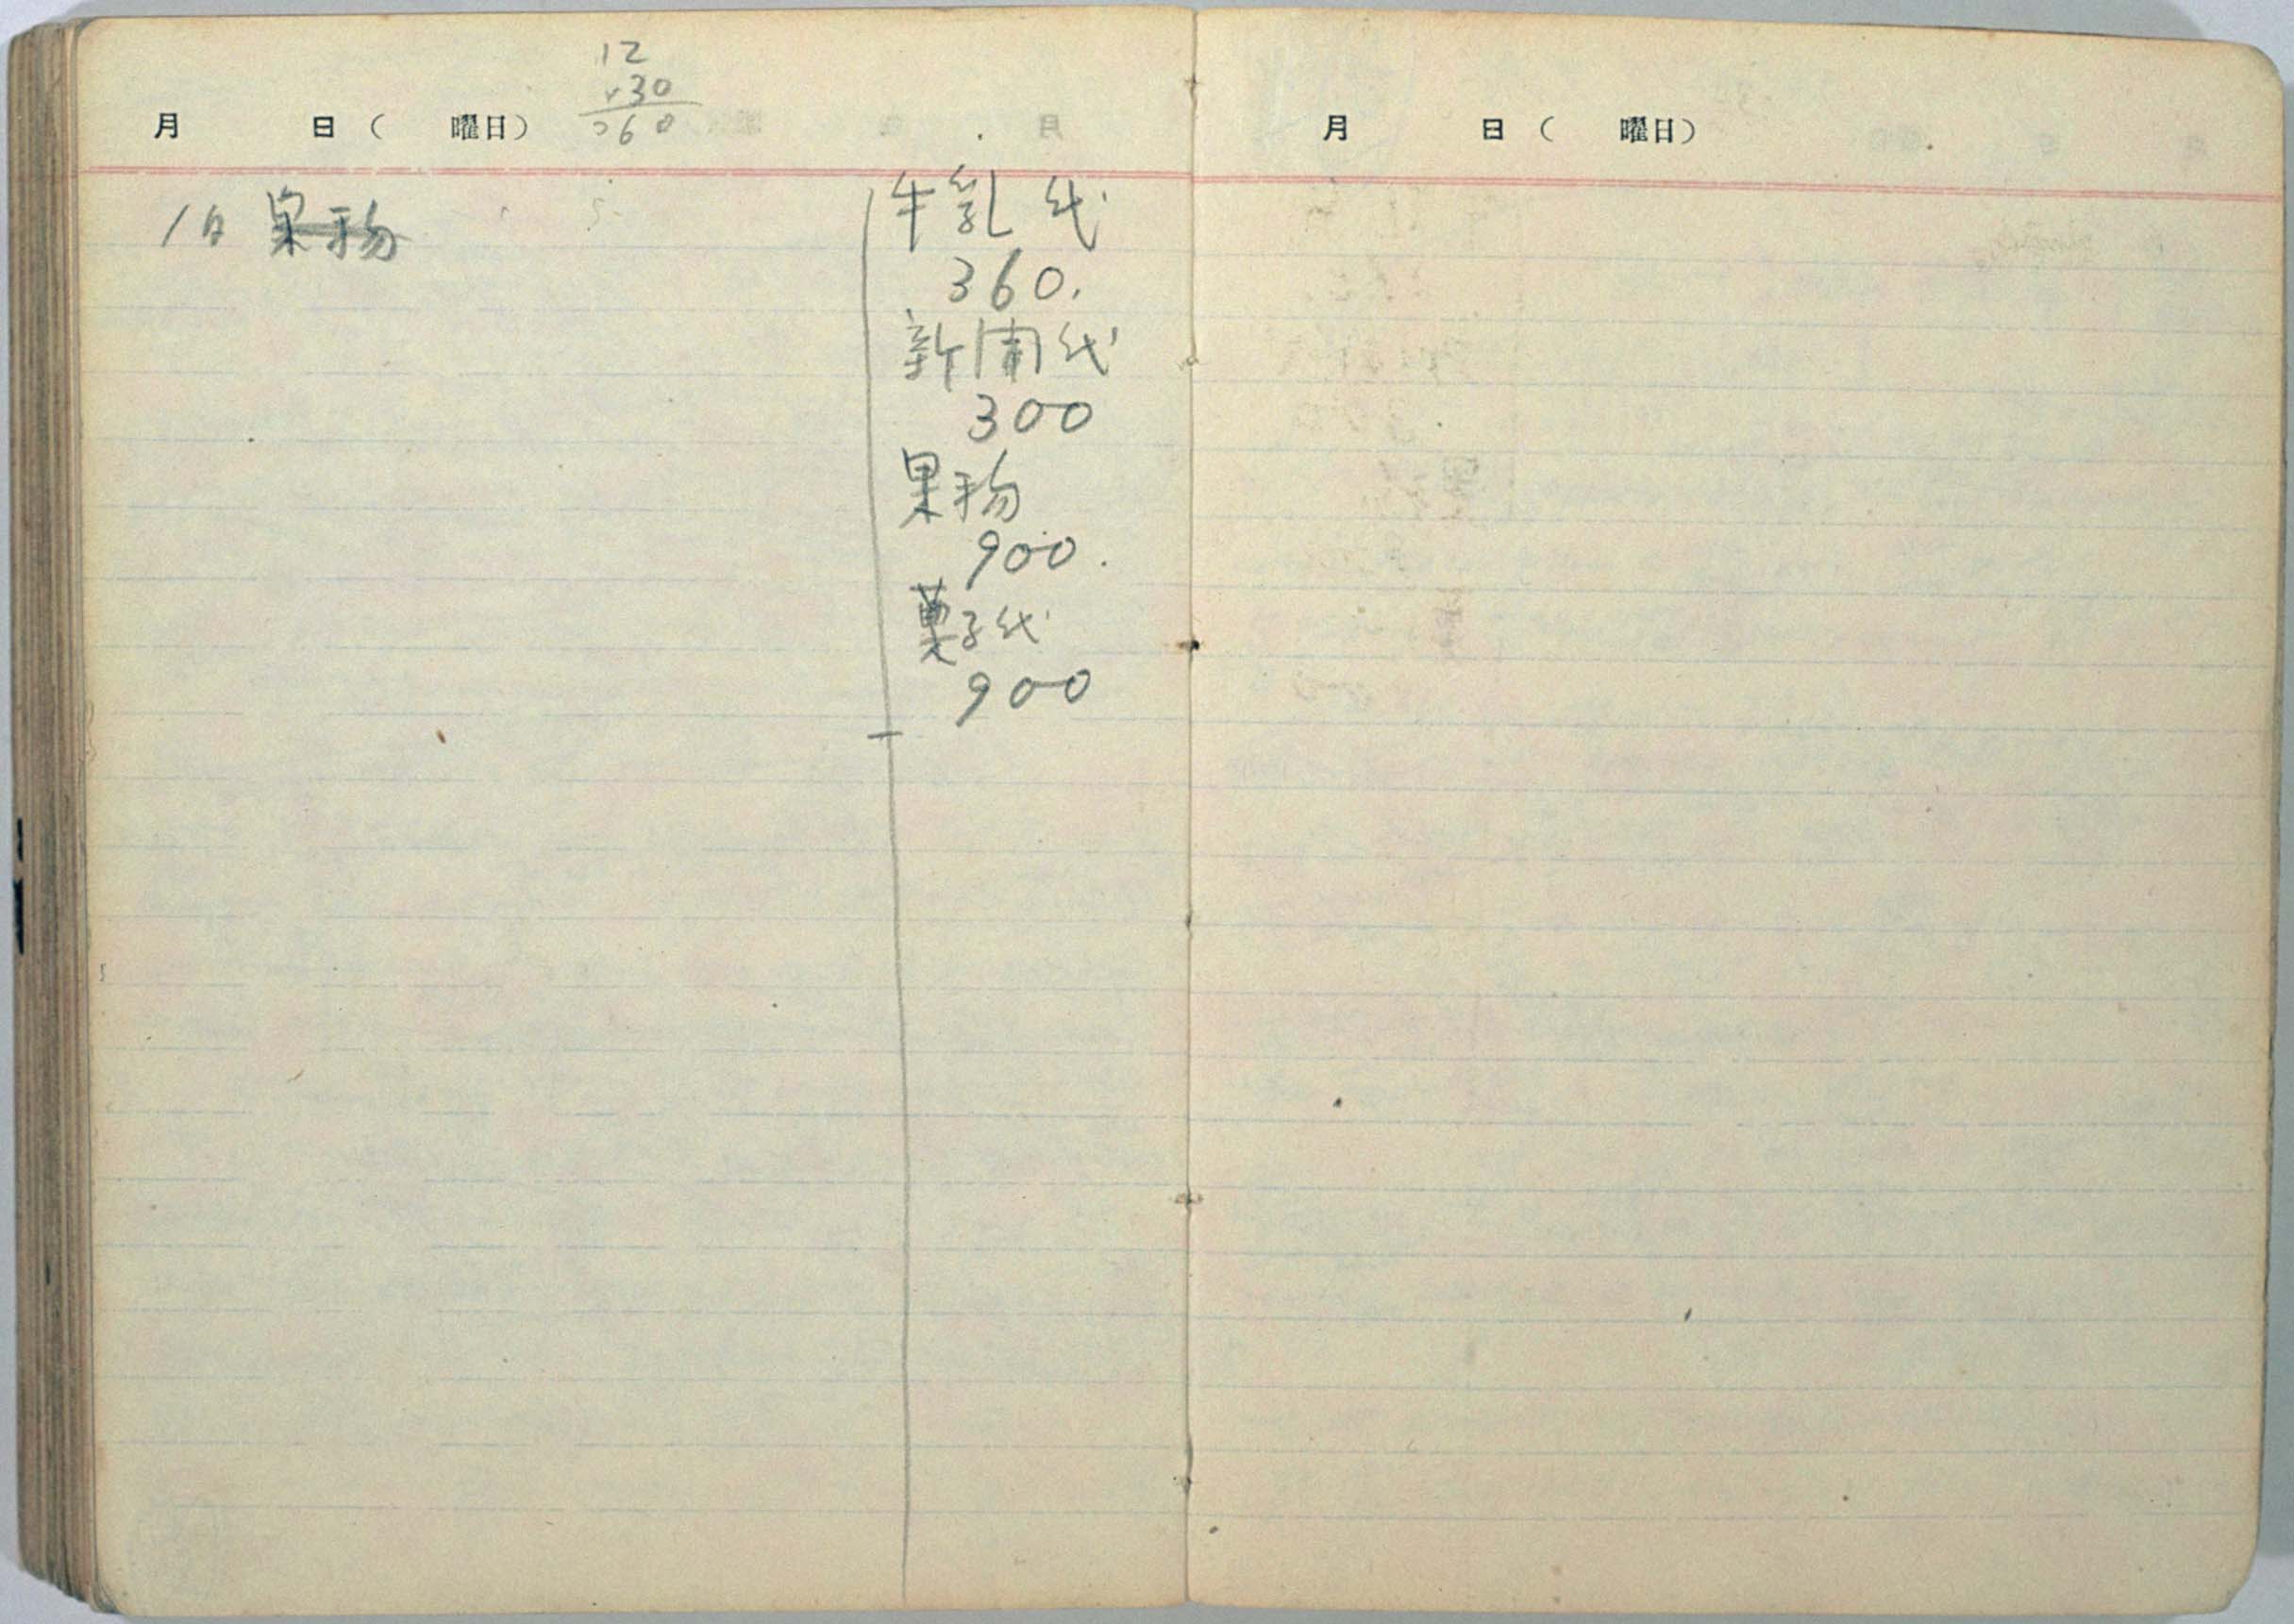 12
×30
360
月 日( 曜日)
1日 果物
牛乳代
360.
新聞代
300
果物
900.
菓子代
900
月 日( 曜日)